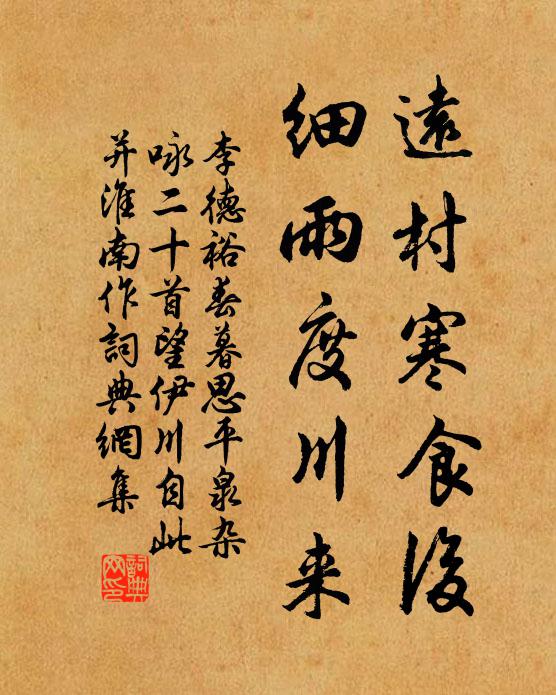 遠村寒食後
细雨度川来
李德裕春暮思平泉杂
咏二十首望伊川自此
并淮南作詞典網集
詞典
网印